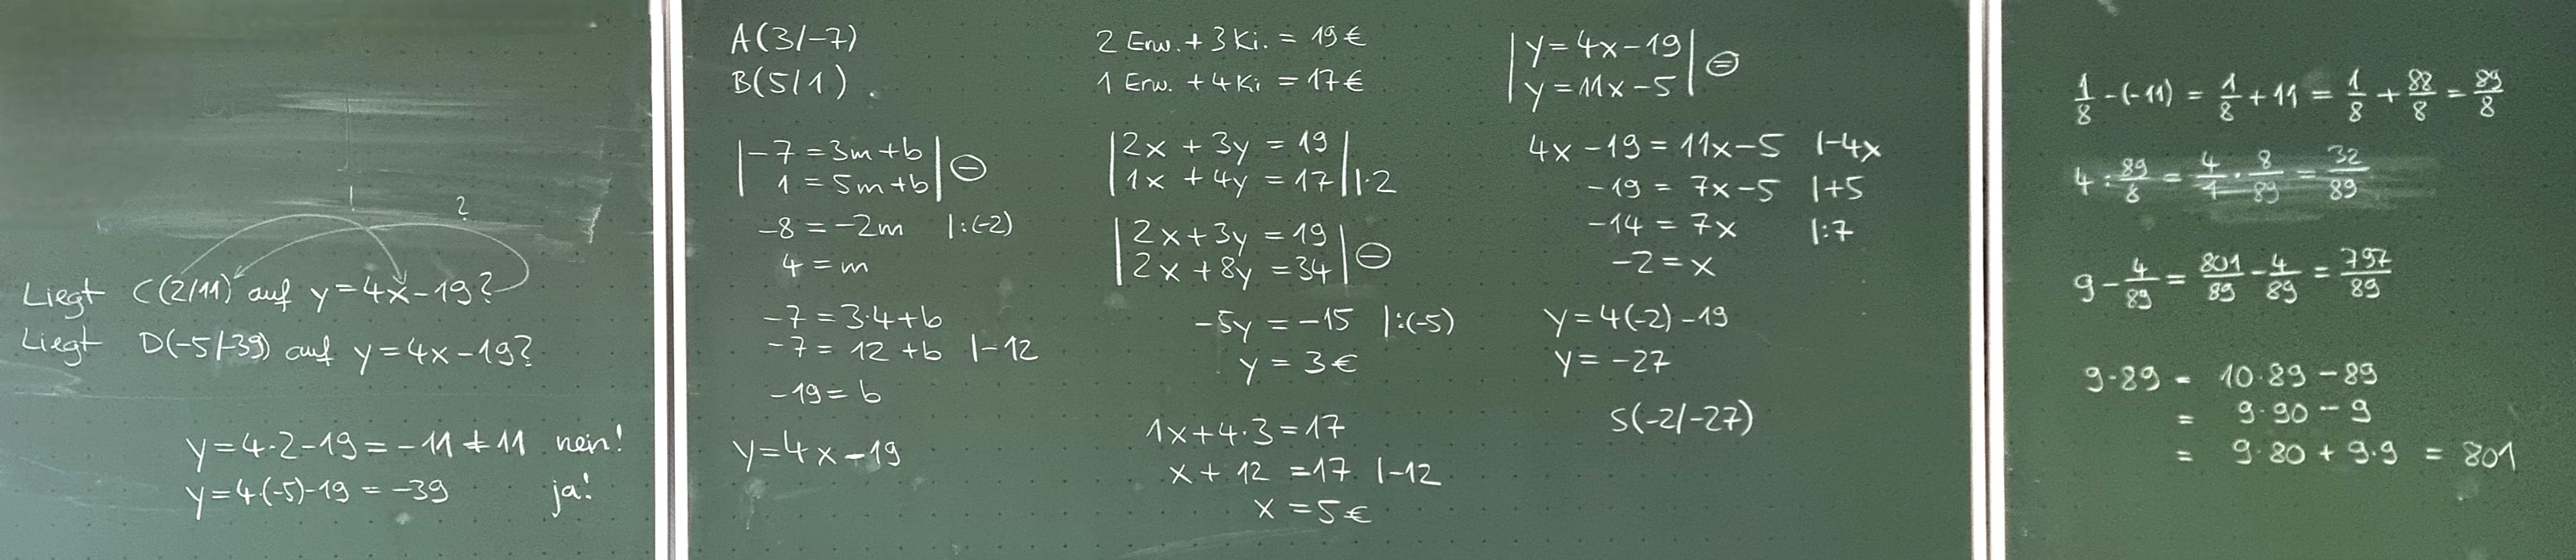 !
?
Liegt C(2/11) auf y=4x-19?
Liegt D(-5/-39) auf y=4x-19?
y=4·2-19=-11≠11 nein!
y=4·(-5)-19=-39 ja!
A(3/-7)
B(5/1)
|-7=3m+b| ⊖
|1=5m+b|
-8=-2m |:(-2)
4=m
-7=3·4+b
-7=12+b |-12
-19=b
y=4x-19
2 Erw.+3Ki.=19€
1 Erw.+4Ki=17€
|2x+3y=19|
|1x+4y=17| |·2
|2x+3y=19| ⊖
|2x+8y=34|
-5y=-15 |:(-5)
y=3€
1x+4·3=17
x+12=17 |-12
x=5€
|y=4x-19| ⊜
|y=11x-5|
4x-19=11x-5 |-4x
-19=7x-5 |+5
-14=7x |:7
-2=x
y=4(-2)-19
y=-27
S(-2/-27)
1/8-(-11)=1/8+11=1/8+88/8=89/8
4:89/8=4/1·8/89=32/89
9-4/89=801/89-4/89=797/89
9·89=10·89-89
=9·90-9
=9·80+9·9=801